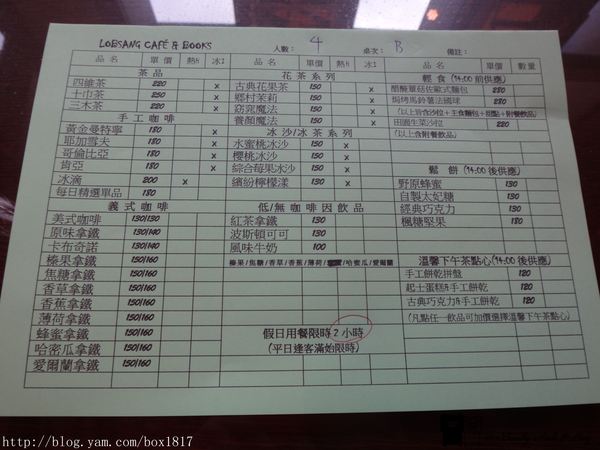 LOBSANG CAFÉ & BOOKS
人數: 4 桌次: B 備註:
品名 單價 熱 冰
茶品
四維茶 220 x
十巾茶 250 x
三木茶 220 x
手工咖啡
黃金曼特寧 180 x
耶加雪夫 180 x
哥倫比亞 180 x
肯亞 180 x
冰滴 200 x
每日精選單品 180
義式咖啡
美式咖啡 130/130
原味拿鐵 130/140
卡布奇諾 130/140
榛果拿鐵 150/160
焦糖拿鐵 150/160
香草拿鐵 150/160
香蕉拿鐵 150/160
薄荷拿鐵 150/160
蜂蜜拿鐵 150/160
哈密瓜拿鐵 150/160
愛爾蘭拿鐵 150/160
品名 單價 熱 冰
花茶系列
古典花果茶 150 x
鄉村茉莉 150 x
窈窕魔法 150 x
養顏魔法 150 x
冰沙/冰茶系列
水蜜桃冰沙 150 x
櫻桃冰沙 150 x
綜合莓果冰沙 150 x
繽紛檸檬漾 130 x
低/無咖啡因飲品
紅茶拿鐵 130
波斯頓可可 130
風味牛奶 100
榛果/焦糖/香草/香蕉/薄荷/哈密瓜/愛爾蘭
假日用餐限時2小時
(平日逢客滿始限時)
品名 單價 數量
輕食 (14:00 前供應)
醋醃蕈菇佐歐式麵包 280
焗烤馬鈴薯法國球 280
(以上皆含沙拉+主食麵包+甜點+附餐飲品)
田園生菜沙拉 220
(以上含附餐飲品)
鬆餅 (14:00 後供應)
野原蜂蜜 130
自製太妃糖 130
經典巧克力 130
楓糖堅果 180
溫馨下午茶點心(14:00 後供應)
手工餅乾拼盤 120
起士蛋糕&手工餅乾 120
古典巧克力&手工餅乾 120
(凡點任一飲品可加價選擇溫馨下午茶點心)
http://blog.yam.com/box1817